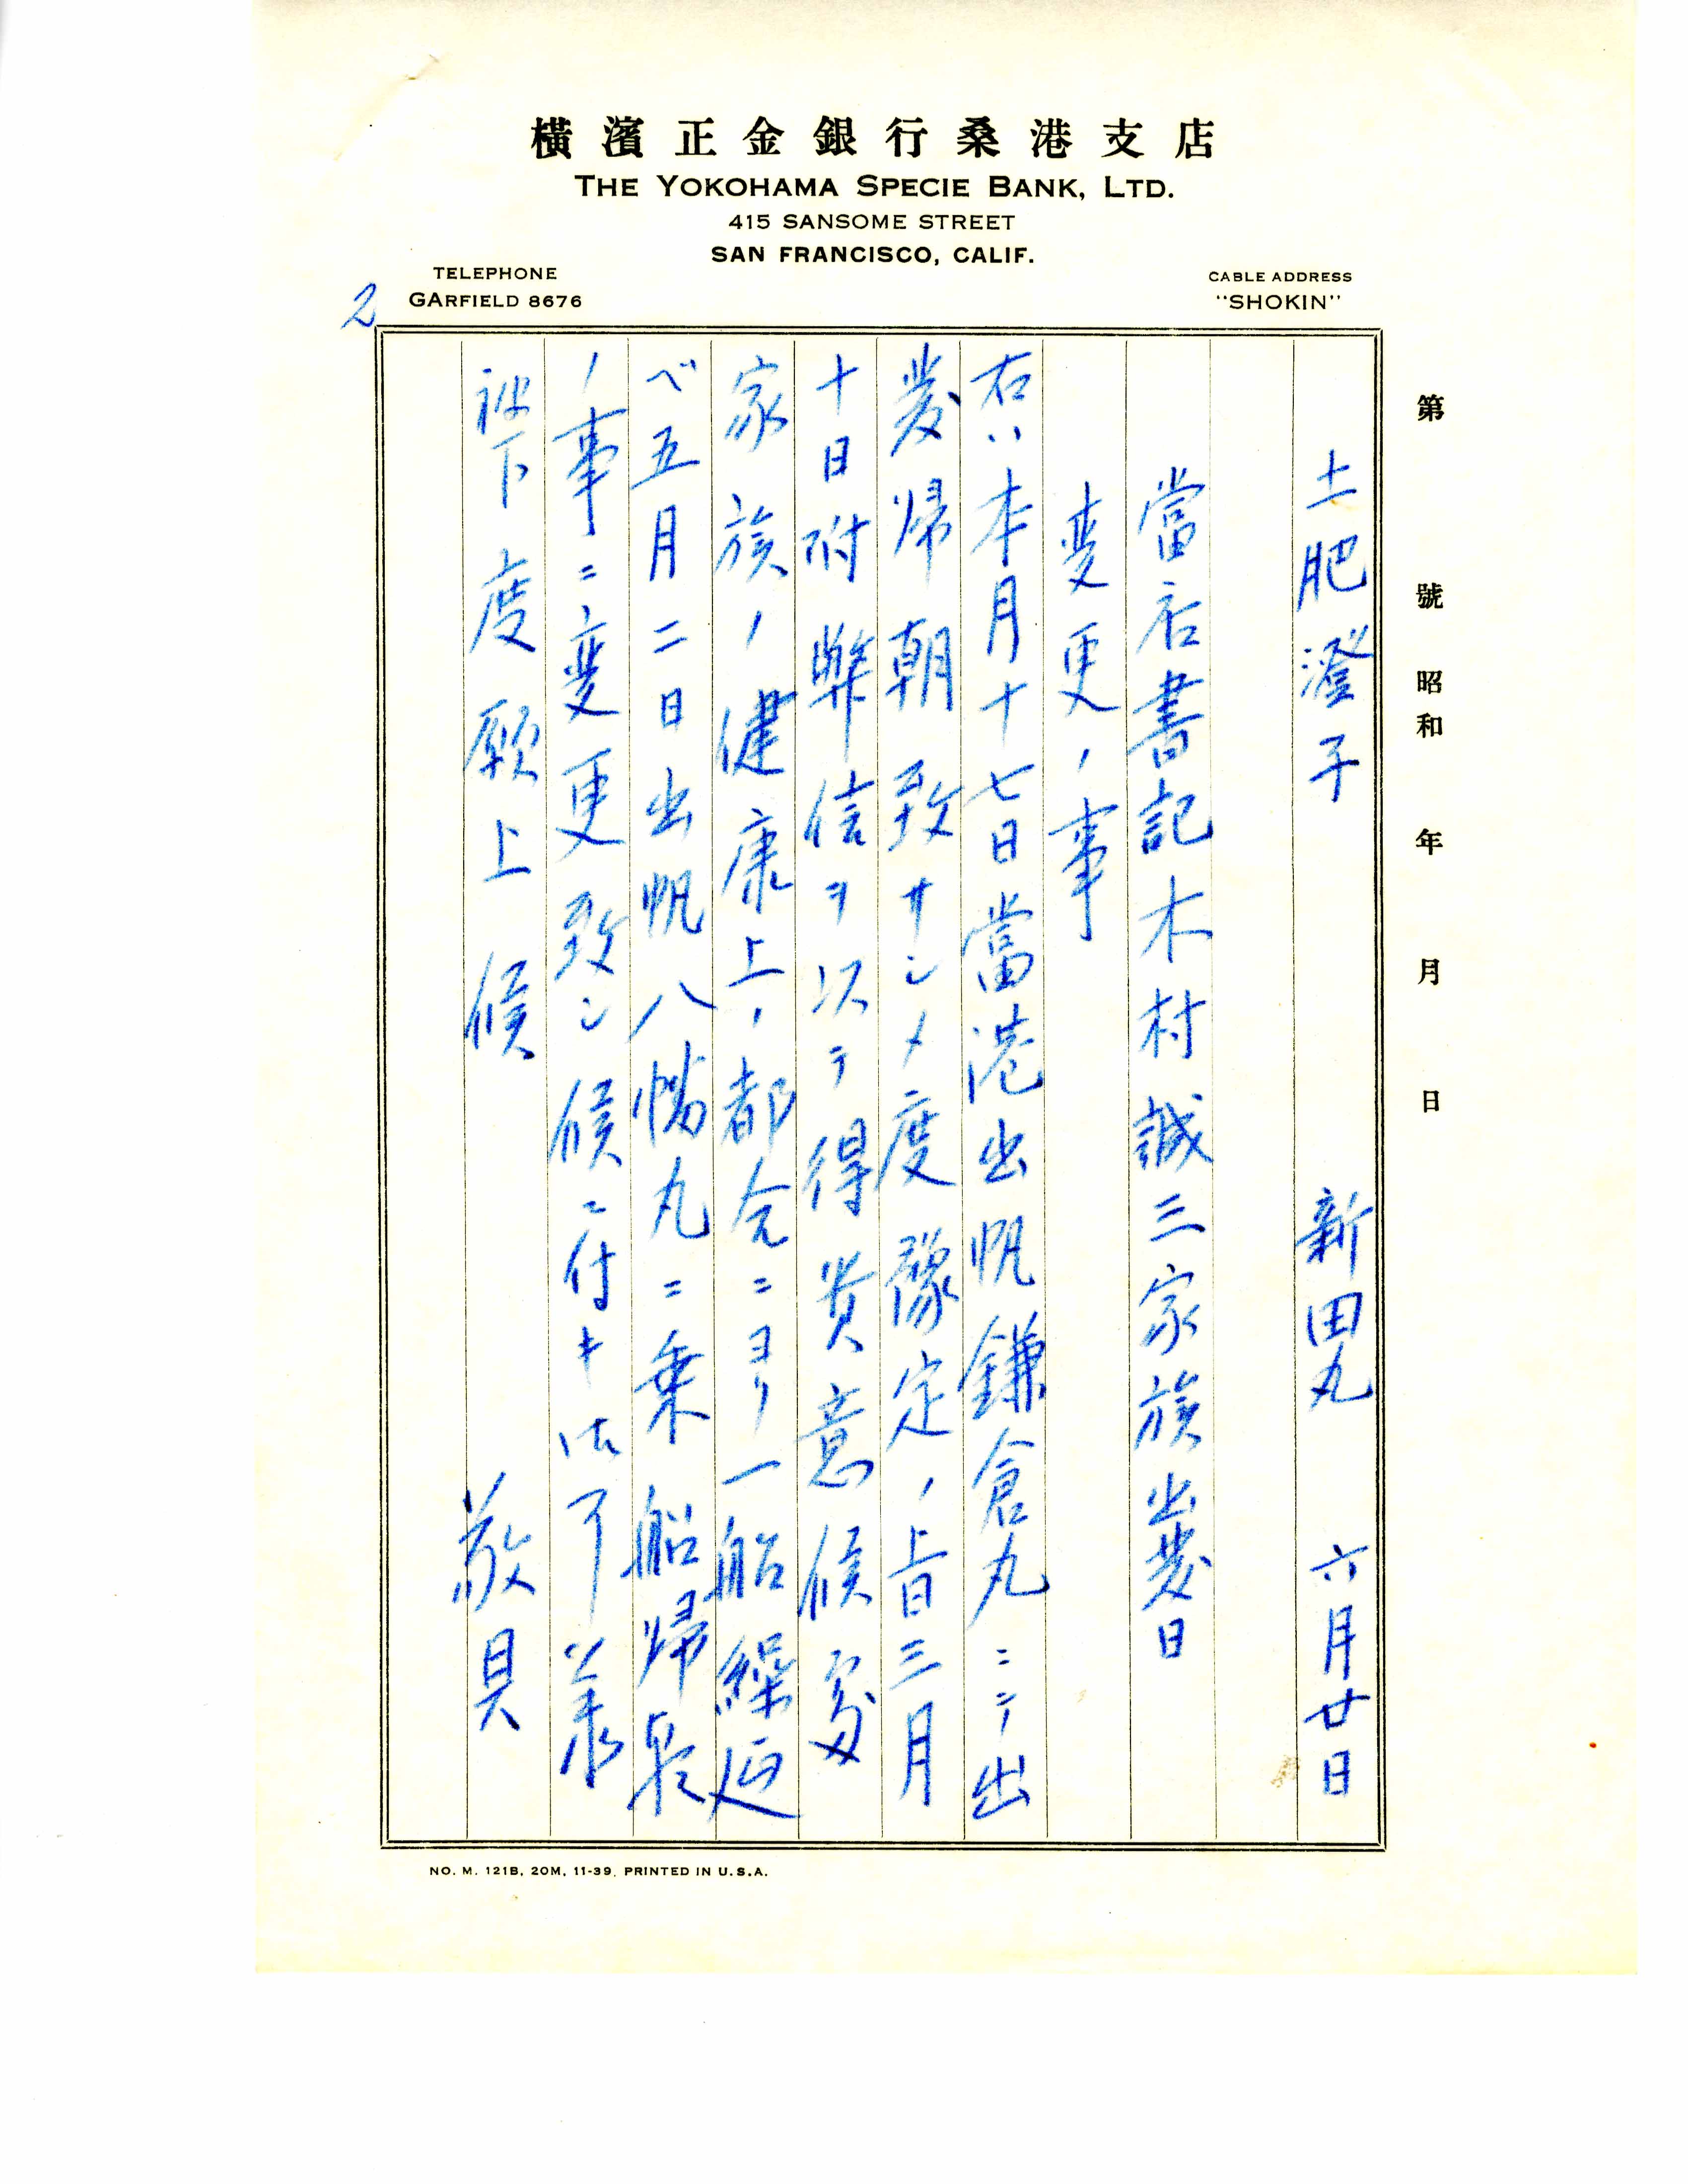 橫濱正金銀行桑港支店
THE YOKOHAMA SPECIE BANK, LTD.
415 SANSOME STREET
SAN FRANCISCO, CALIF.
TELEPHONE
GARFIELD 8676
CABLE ADDRESS
"SHOKIN"
2
第 號 昭和 年 月 日
土肥澄子 新田丸 六月廿日
當店書記木村誠三家族出發日
変更ノ事
右ハ本月十七日當港出帆鎌倉丸ニテ出
發帰朝致サシメ度豫定ノ旨三月
十日附弊信ヲ以テ得貴意候処
家族ノ健康上ノ都合ニヨリ一船繰延
ベ五月二日出帆八幡丸ニ乗船帰朝
ノ事ニ変更致シ候ニ付キ御了承
被下度願上候 敬具
NO. M. 121B, 20M, 11-39, PRINTED IN U.S.A.